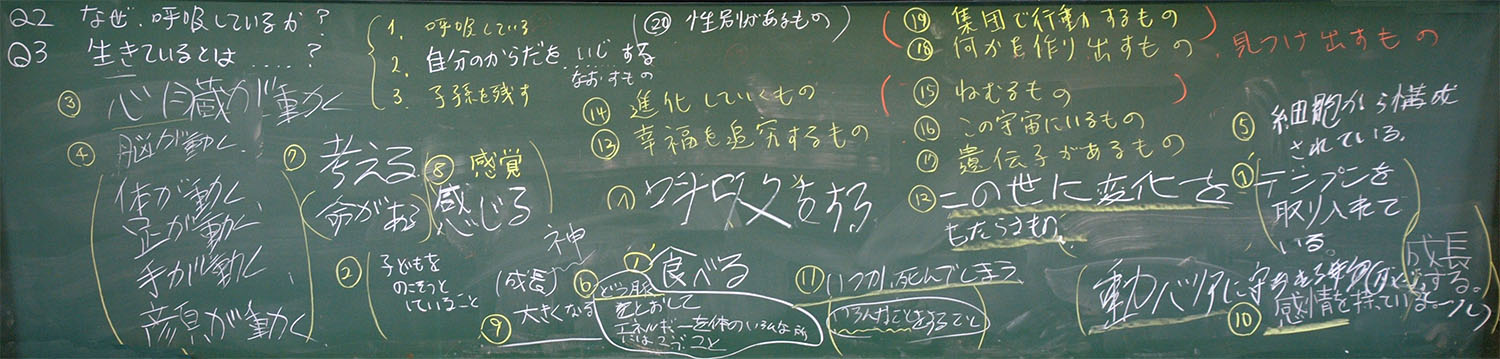 Q2 なぜ、呼吸しているか?
Q3 生きているとは……?
1. 呼吸している
2. 自分のからだを、いじする
なおすもの
3. 子孫を残す
③ 心臓が動く
④ 脳が動く、
体が動く、
足が動く、
手が動く
彦頁が動く
⑦ 考える
(命がある)
⑧ 感覚
感じる
② 子どもを
のこそうと
していること
神
(成長)
⑨ 大きくなる
⑥ どう脈
をとおして
エネルギーを体のいろんな所
にはこぶこと
①' 食べる
(⑳ 性別があるもの)
⑭ 進化していくもの
⑬ 幸福を追究するもの
① 呼吸をする
⑪ いつか死んでしまう
いろんなことをすること
(⑲ 集団で行動するもの)
⑱ 何かを作り出すもの、見つけ出すもの
(⑮ ねむるもの)
⑯ この宇宙にいるもの
⑰ 遺伝子があるもの
⑫ この世に変化を
もたらすもの
⑤ 細胞から構成
されている。
①' デンプンを
取り入れて
いる。
成長
する。
⑩ 感情を持っている。